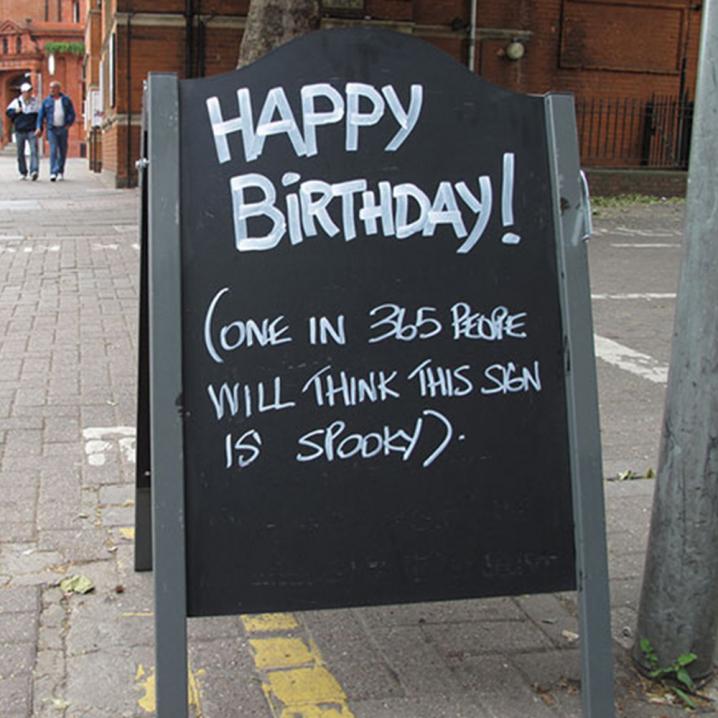 HAPPY
BiRTHDAY!
(ONE IN 365 PEOPLE
WILL THINK THIS SIGN
IS SPOOKY).